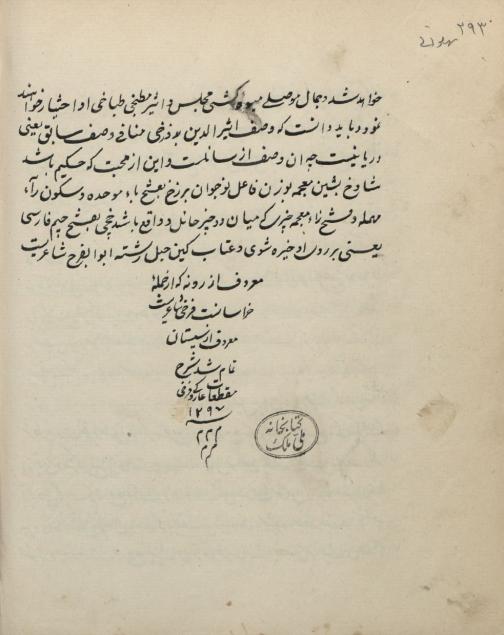 ۲۹۳
خواهد شد و بجمال موصلی میوه کشی مجلس و اثیر مطبخی طباخی او اختیار خواهند
نمود و باید دانست که وصف اثیر الدین بدوزخی منافی وصف سابق یعنی
دربانیست چه آن وصف از رسالتست و این از محبت که حکیم باشد
شاوخ بشین معجمه بوزن فاعل نوجوان برزخ بفتح باء موحده و سکون راء
مهمله و فتح زاء معجمه چیزی که میان دو چیز حائل و واقع باشد چخی بفتح جیم فارسی
یعنی بر روی او خیره شوی و عتاب کنی حبل رشته ابو الفرح شاعریست
معروف از رونه که از جمله
خراسانست فرخی شاعریست
معروف از سیستان
تمام شد شرح
مقطعات
سنه ۱۲۹۷
م م م
م م
کتابخانه
ملی ملک